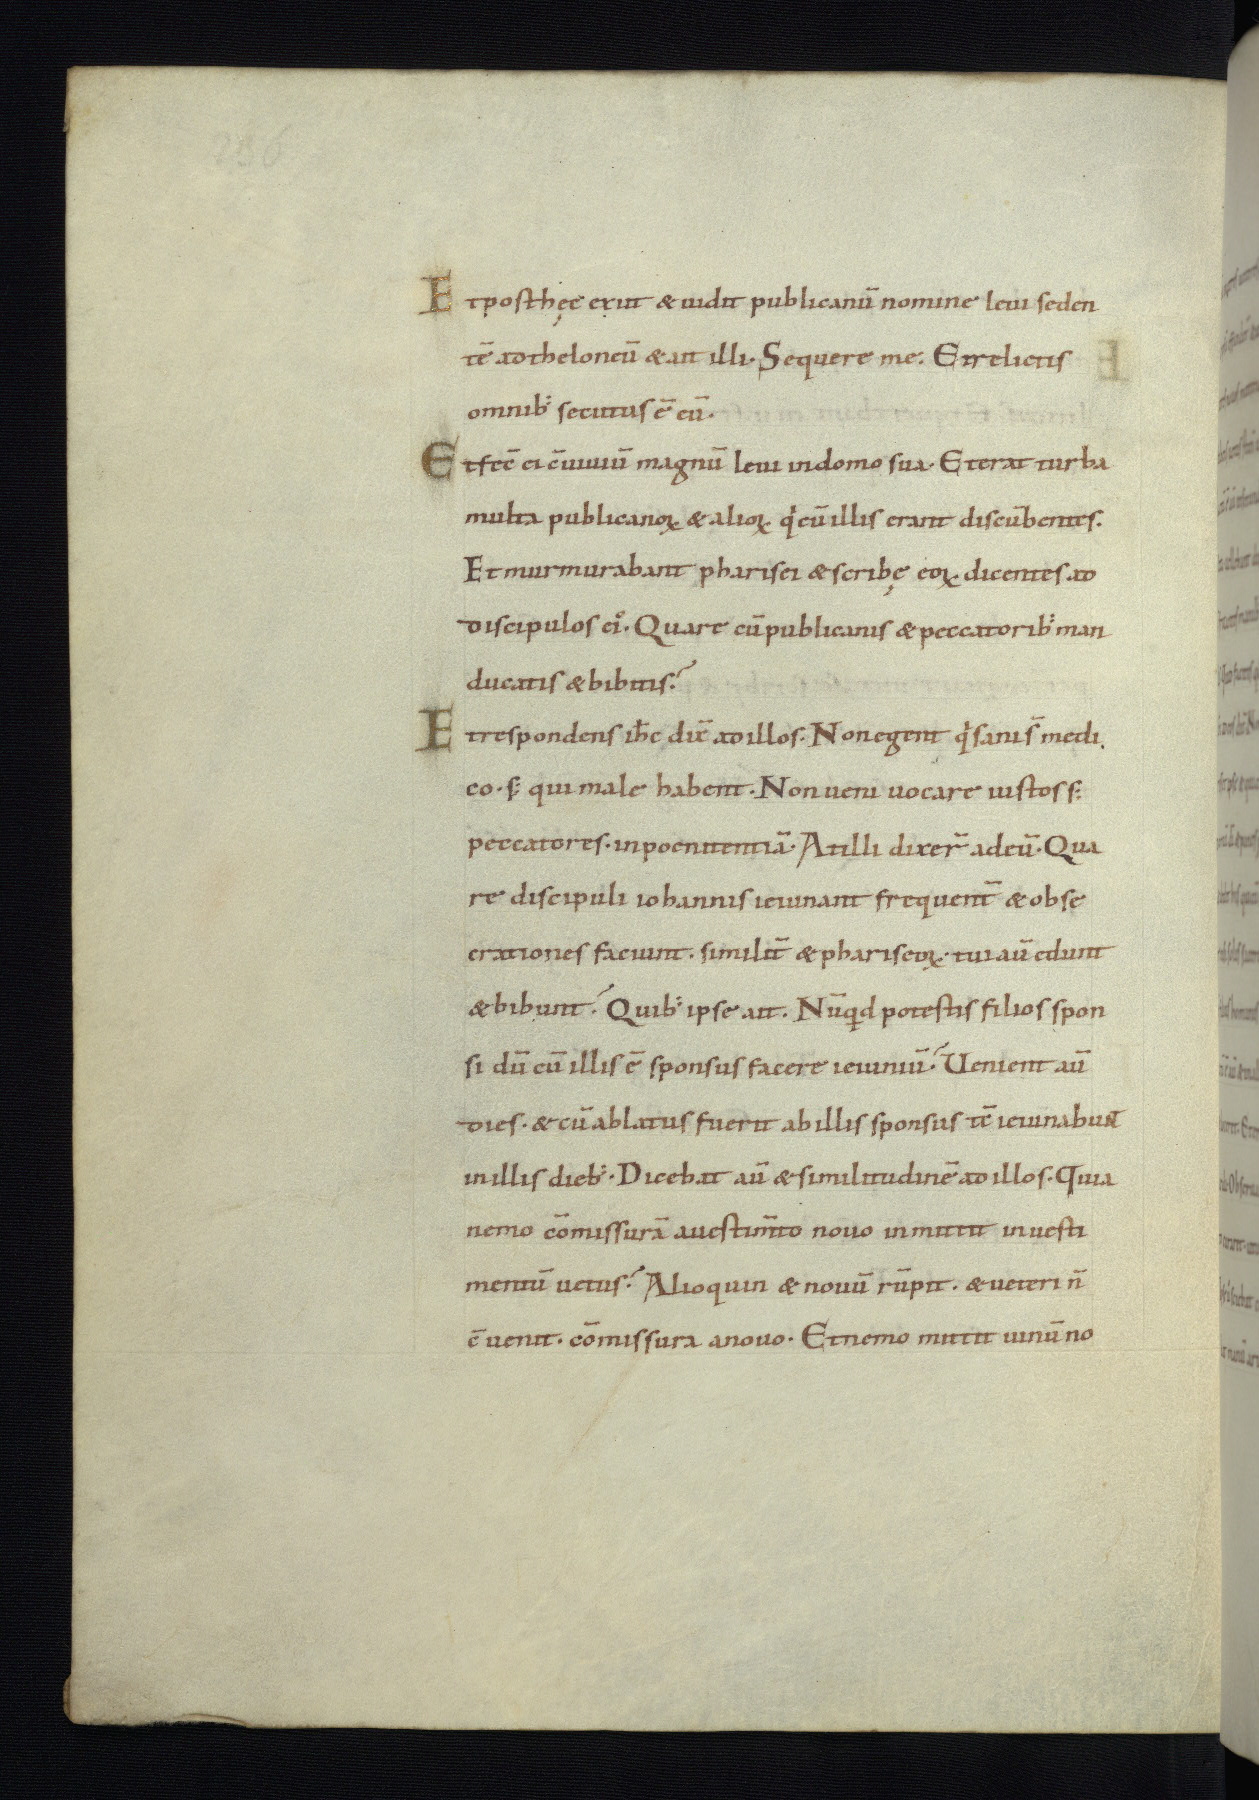 236
Et post hęc exiit & uidit publicanū nomine leui seden
tē ad theloneū & ait illi. Sequere me. Et relictis
omnib; secutus ē eū.
Et fec̄ ei c̄uiuiū magnū leui in domo sua. Et erat turba
multa publicanoꝝ & alioꝝ qͥ cū illis erant discūbentes.
Et murmurabant pharisei & scribę eoꝝ dicentes ad
discipulos ei᾽. Quare cū publicanis & peccatorib; man
ducatis & bibitis?
Et respondens ih̄c dix̄ ad illos. Non egent qͥ sani s̄ medi
co. s; qui male habent. Non ueni uocare iustos s;
peccatores. in poenitentiā. At illi dixer̄ ad eū. Qua
re discipuli iohannis ieiunant frequent̄ & obse
crationes faciunt. similit̄ & phariseoꝝ. tui aū edunt
& bibunt? Quib; ipse ait. Nūqͥd potestis filios spon
si dū cū illis ē sponsus facere ieiuniū? Uenient aū
dies. & cū ablatus fuerit ab illis sponsus tc̄ ieiunabunt
in illis dieb;. Dicebat aū & similitudinē ad illos. Quia
nemo cōmissurā a uestim̄to nouo inmittit in uesti
mentū uetus? Alioquin & nouū rūpit. & ueteri n̄
c̄uenit. cōmissura a nouo. Et nemo mittit uinū no